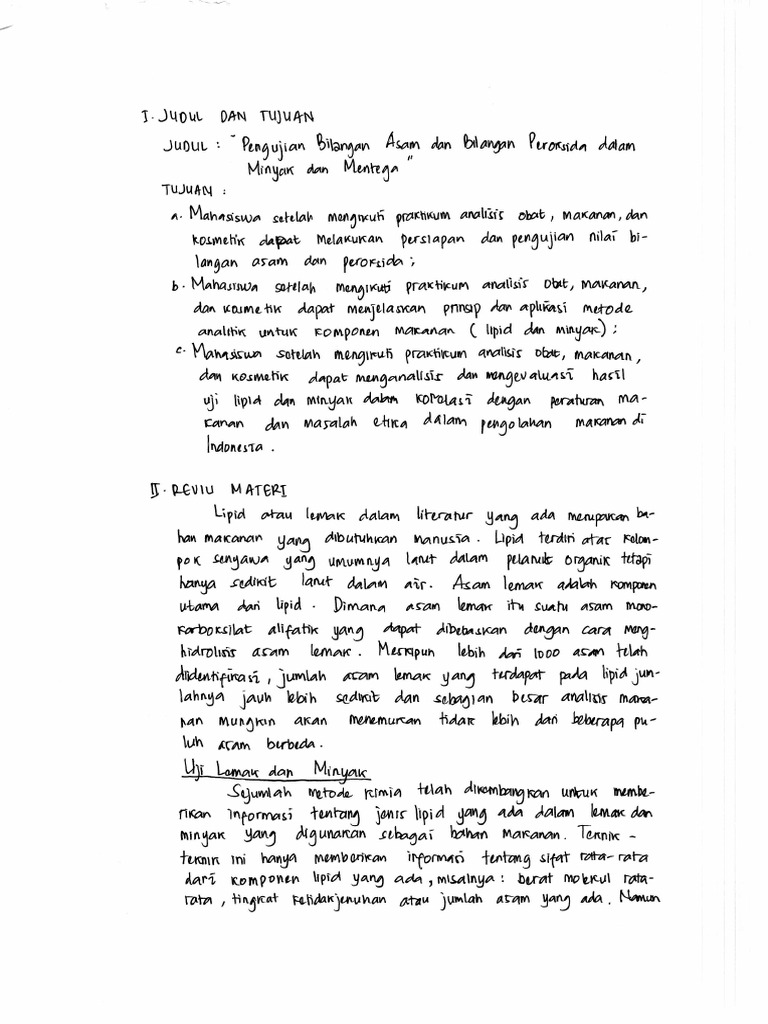 I. JUDUL DAN TUJUAN
JUDUL : "Pengujian Bilangan Asam dan Bilangan Peroksida dalam
Minyak dan Mentega"
TUJUAN :
a. Mahasiswa setelah mengikuti praktikum analisis obat, makanan, dan
kosmetik dapat melakukan persiapan dan pengujian nilai bi-
langan asam dan peroksida ;
b. Mahasiswa setelah mengikuti praktikum analisis obat, makanan,
dan kosmetik dapat menjelaskan prinsip dan aplikasi metode
analitik untuk komponen makanan ( lipid dan minyak) ;
c. Mahasiswa setelah mengikuti praktikum analisis obat, makanan,
dan kosmetik dapat menganalisis dan mengevaluasi hasil
uji lipid dan minyak dalam korolasi dengan peraturan ma-
kanan dan masalah etika dalam pengolahan makanan di
Indonesia .
II. REVIU MATERI
Lipid atau lemak dalam literatur yang ada merupakan ba-
han makanan yang dibutuhkan manusia. Lipid terdiri atas kelom-
pok senyawa yang umumnya larut dalam pelarut organik tetapi
hanya sedikit larut dalam air. Asam lemak adalah komponen
utama dari lipid . Dimana asam lemak itu suatu asam mono-
karboksilat alifatik yang dapat dibebaskan dengan cara meng-
hidrolisis asam lemak. Meskipun lebih dari 1000 asam telah
diidentifikasi, jumlah asam lemak yang terdapat pada lipid jum-
lahnya jauh lebih sedikit dan sebagian besar analisis maka-
nan mungkin akan menemukan tidak lebih dari beberapa pu-
luh asam berbeda.
Uji Lemak dan Minyak
Sejumlah metode kimia telah dikembangkan untuk membe-
rikan informasi tentang jenis lipid yang ada dalam lemak dan
minyak yang digunakan sebagai bahan makanan. Teknik -
teknik ini hanya memberikan informasi tentang sifat rata-rata
dari komponen lipid yang ada, misalnya : berat molekul rata-
rata , tingkat ketidakjenuhan atau jumlah asam yang ada. Namun